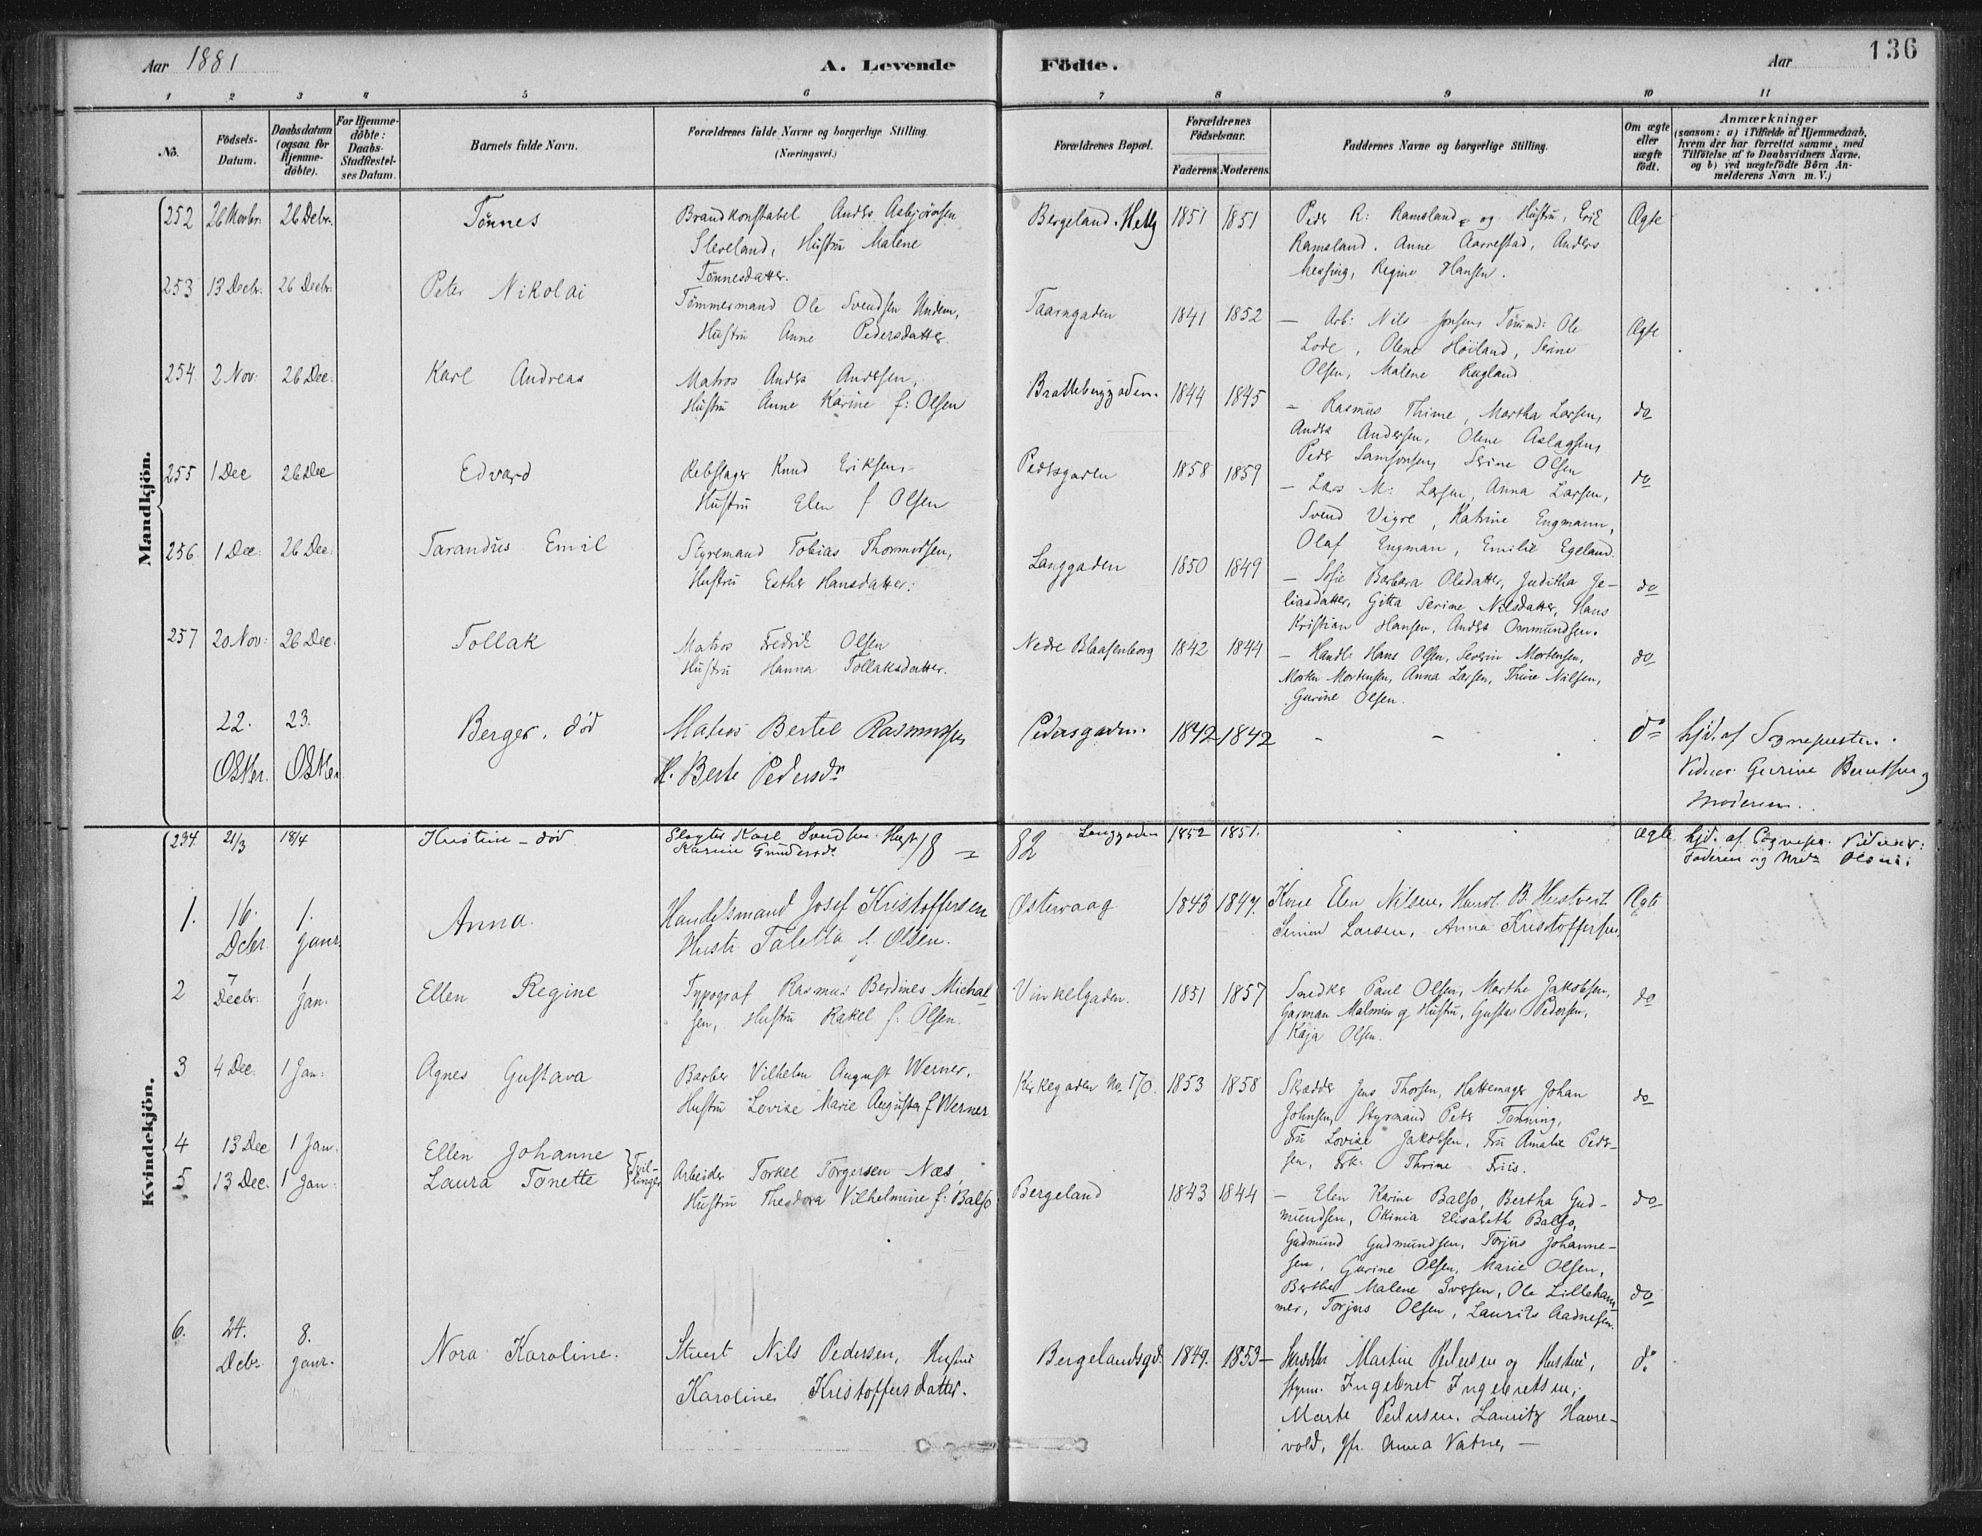 Aar 1881 A. Levende Födte. Aar 136
1 2 3 4 5 6 7 8 9 10 11
No. Födsels-Datum. Daabsdatum (ogsaa for Hjemmedøbte). For Hjemmedøbte: Daabs-Stadfæstelses Datum. Barnets fulde Navn. Forældrenes fulde Navne og borgerlige Stilling. (Næringsvei.) Forældrenes Bopæl. Forældrenes Födselsaar. Faderens Moderens Faddernes Navne og borgerlige Stilling. Om ægte eller uægte født. Anmærkninger (saasom: a) i Tilfælde af Hjemmedaab, hvem der har forrettet samme, med Tilföielse af to Daabsvidners Navne, og b) ved uægtefödte Börn Anmelderens Navn m. V.)
Mandkjön.
252 26 Novbr. 26 Debr. Tønnes Brandkonstabel Anders Asbjørnsen Bergeland. 1851 1851 Peder R: Ramsland og Hustru, Erik Ægte
Sleveland, Hustru Malene Ramsland, Anne Aarrestad, Anders
Tønnesdatter. Messing, Regine Hansen.
253 13 Decbr. 26 Decbr. Peter Nikolai Tømmermand Ole Svendsen Undem, Taarngaden 1841 1852 — Arb: Nils Jonsen, Tømmd: Ole Ægte
Hustru Anne Pedersdatter. Lode, Olene Høiland, Serine
Olsen, Malene Rugland
254. 2 Nov: 26 Dec: Karl Andreas Matros Anders Andersen, Bratteberggaden. 1844 1845 — Rasmus Thime, Martha Larsen, do
Hustru Anne Karine f: Olsen Anders Andersen, Olene Aslagsen,
Peder Samsonsen, Serine Olsen
255 1 Dec 26 Dec Edvard Rebslager Knud Eriksen, Pedersgaden 1858 1859 — Lars M: Larsen, Anna Larsen, do
Hustru Elen f Olsen Svend Vigre, Katrine Engmann,
Olaf Engman, Emilie Egeland.
256. 1 Dec: 26 Dec: Tarandus Emil Styremand Tobias Thormodsen, Langgaden 1850 1849 — Sofie Barbara Olsdatter, Juditha Je- do
Hustru Esther Hansdatter: liasdatter, Gitta Serine Nilsdatter, Hans
Kristian Hansen, Anders Ommundsen.
257 20 Nov: 26 Dec: Tollak Matros Fredrik Olsen Nedre Blaasenborg 1842 1844 — Handl: Hans Olsen, Severin Mortensen, do
Hustru Hanna Tollaksdatter. Morten Mortensen, Anna Larsen, Thine Nilsen,
Gurine Olsen.
22. 23. Berger, død Matros Bertel Rasmussen Pedersgaden. 1842 1842 - - do hjd. af Sognepresten.
Oktbr. Oktbr. H. Berte Pedersdr Vidner: Gurine Berntsen og
Moderen.
Kvindekjön.
234. 21/3 18/4 Kristine — død Slagter Karl Svendsen. Hust. 18 82 Langgaden 1852 1851. Ægte hjd. af Sognepr. Vidner:
Karine Gundersdr. Faderen og Olsen.
1. 16. 1. Anna. Handelsmand Josef Kristoffersen Østervaag 1843 1847. Kone Elen Nilsen, Handl. B. Hestvedt Ægte
Debr. Janr. Hustr. Taletta f. Olsen. Simon Larsen, Anna Kristoffersen,
2 7 Decbr. 1 Jan. Ellen Regine Typograf Rasmus Berdines Michal- Vinkelgaden. 1851 1857 Snedker Paul Olsen, Marthe Jakobsen, do
sen, Hustru Rakel f: Olsen. Garman Malmin og Hustru, Gustav Pedersen,
Kaja Olsen.
3 4 Dec. 1 Jan: Agnes Gustava Barber Vilhelm August Werner, Kirkegaden No. 170. 1853 1858 Skrædder Jens Thorsen, Hattemager Johan do
Hustru Lovise Marie Augusta f Werner Johnsen, Styrmand Peter Tønning,
Fru Lovise Jakobsen, Fru Amalie Peder-
sen, Frk: Thrine Friis.
4 13 Dec 1 Jan. Ellen Johanne } Tvil-
5 13 Dec. 1 Jan: Laura Tonette } linger Arbeider Torkel Torgersen Næs, Bergeland 1843 1844 — Elen Karine Balso, Bertha Gud- do
Hustru Theodora Vilhelmine f: Balso mundsen, Okinia Elisabeth Balso,
Gudmund Gudmundsen, Torjus Johanne-
sen, Gurine Olsen, Marie Olsen,
Berthe Malene Iversen, Ole Lilleham- do
mer, Torjus Olsen, Laurits Aadnesen.
6. 24. 8. Nora Karoline. Stuert Nils Pedersen, Hustru Bergelandsgd. 1849. 1853 — Skrædder Martin Pedersen og Hustru, do
Debr. Janr. Karoline Kristoffersdatter. Styrm. Ingebret Ingebretsen,
Marte Pedersen, Lauritz Havre-
vold, Jfr. Anna Vatne, —